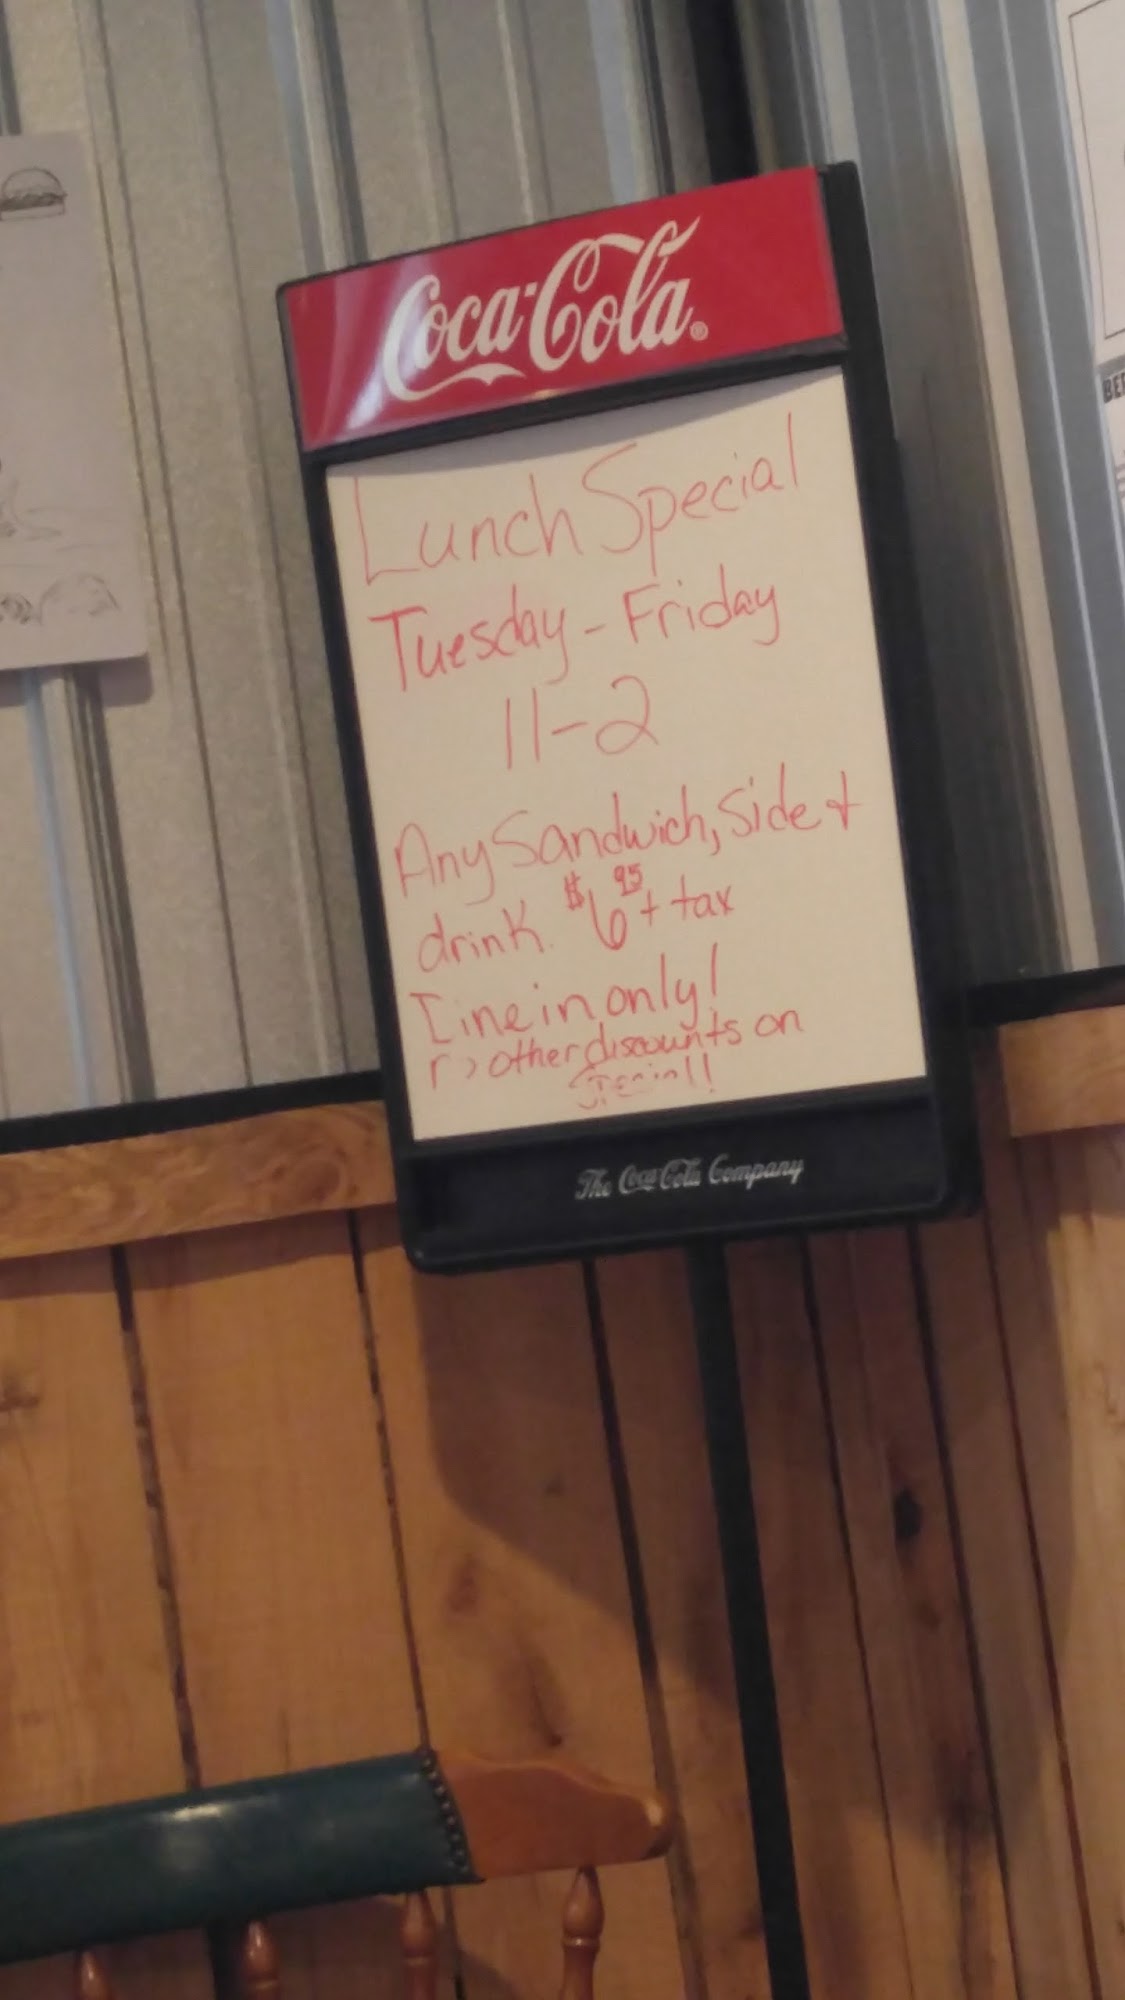 Coca-Cola®
Lunch Special
Tuesday - Friday
11-2
Any Sandwich, Side &
drink. $6.95 + tax
Dine in only!
other discounts on
Special!!
The Coca-Cola Company